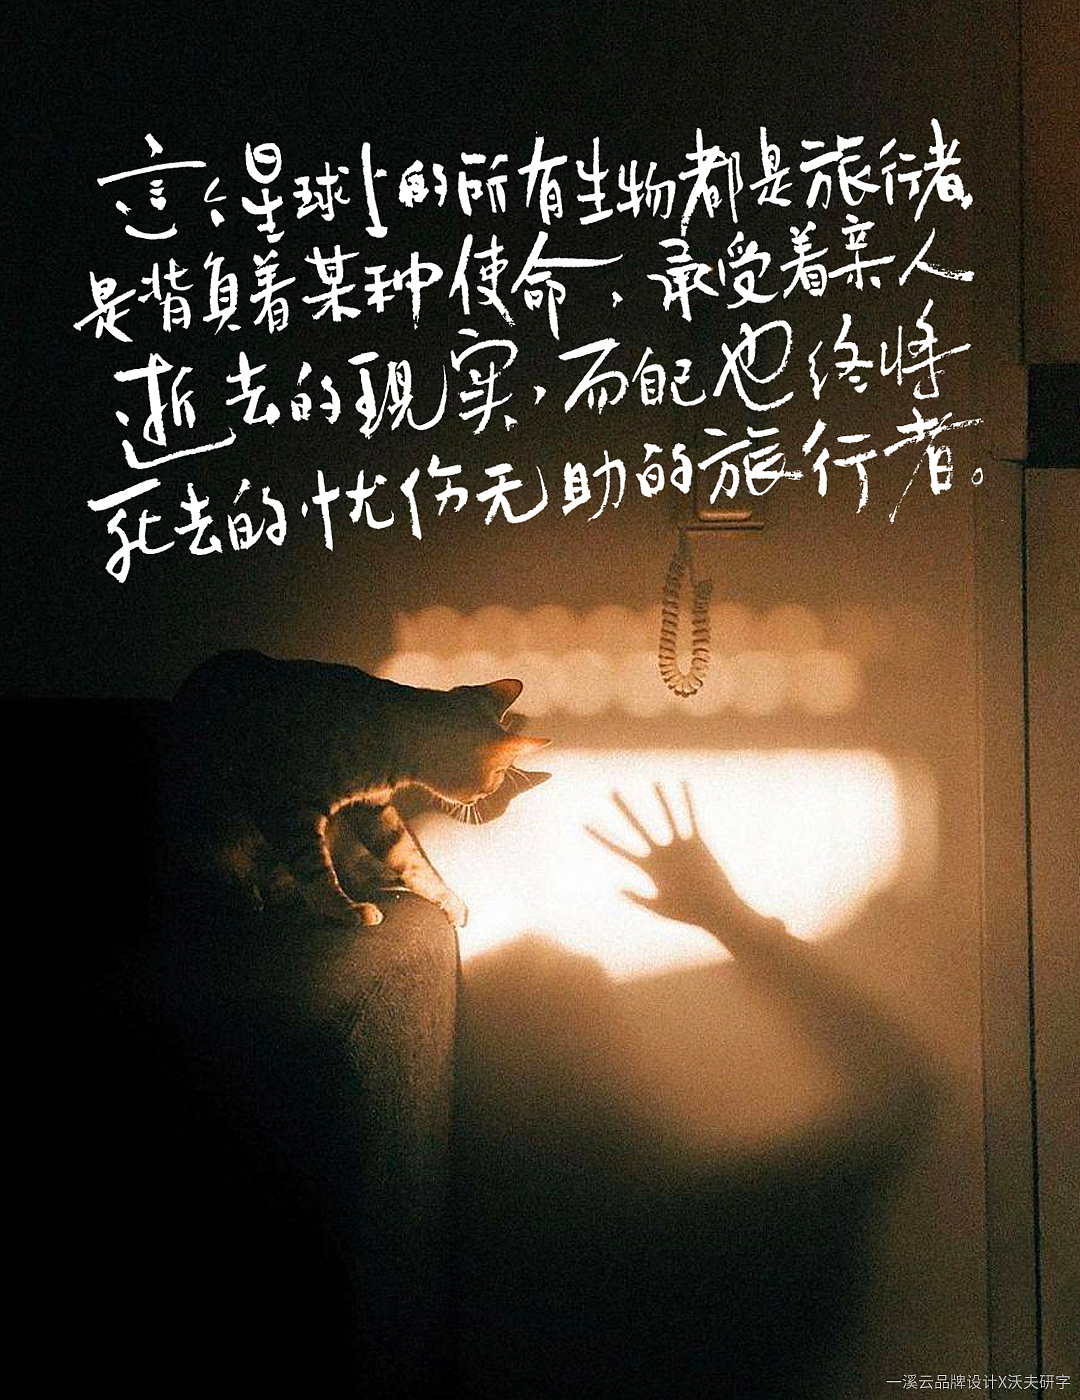 這个星球上的所有生物都是旅行者,
是背負着某种使命,承受着亲人
逝去的現实,而自己也终将
死去的忧伤无助的旅行者。
一溪云品牌设计X沃夫研字